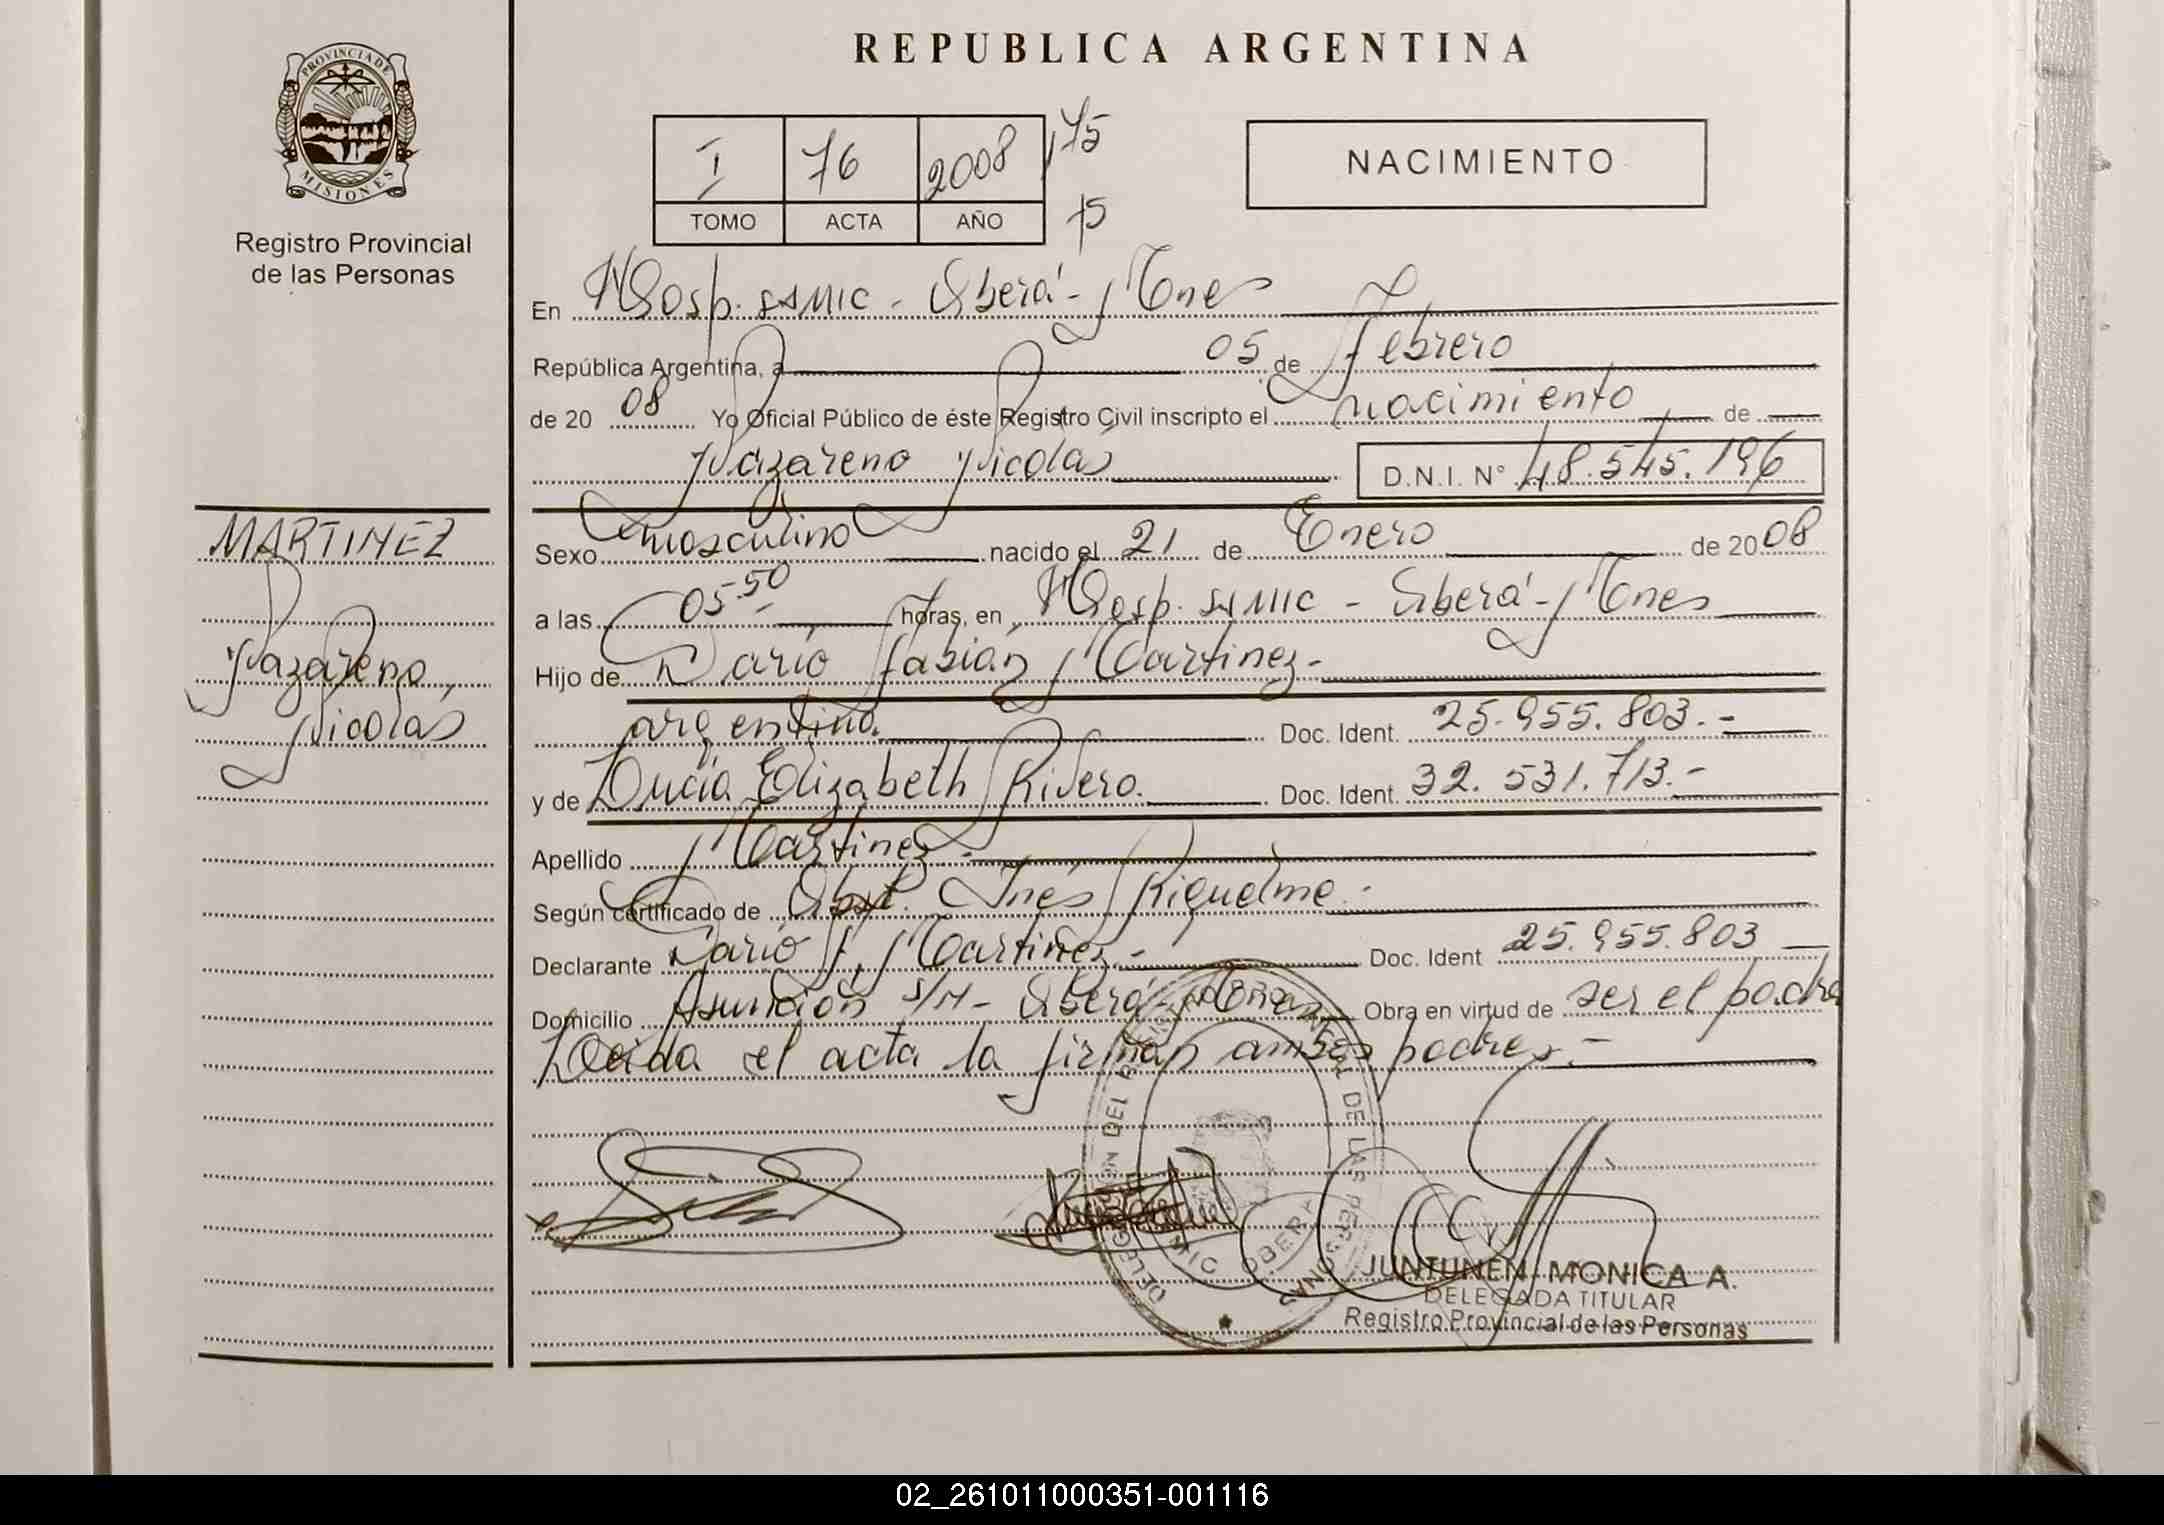 PROVINCIA DE
MISIONES
Registro Provincial
de las Personas
REPUBLICA ARGENTINA
I 76 2008 175
TOMO ACTA AÑO 75
NACIMIENTO
En Hosp. SAMIC - Oberá - Mnes
República Argentina, a 05 de Febrero
de 2008 Yo Oficial Público de éste Registro Civil inscripto el nacimiento de
Nazareno Nicolás D.N.I. N° 48.545.196
MARTINEZ
Nazareno
Nicolás
Sexo masculino nacido el 21 de Enero de 2008
a las 05.50 horas, en Hosp. SAMIC - Oberá - Mnes
Hijo de Darío Fabián Martinez.-
argentino. Doc. Ident. 25.955.803.-
y de Lucía Elizabeth Rivero. Doc. Ident. 32.531.713.-
Apellido Martinez.-
Según certificado de Obst. Inés Riquelme.
Declarante Darío F. Martinez.- Doc. Ident 25.955.803
Domicilio Asunción S/N - Oberá - Mnes Obra en virtud de ser el padre
Leida el acta la firman ambos padres.-
DELEGACION DEL REGISTRO PROVINCIAL DE LAS PERSONAS
SAMIC OBERA
JUNTUNEN MONICA A.
DELEGADA TITULAR
Registro Provincial de las Personas
02_261011000351-001116